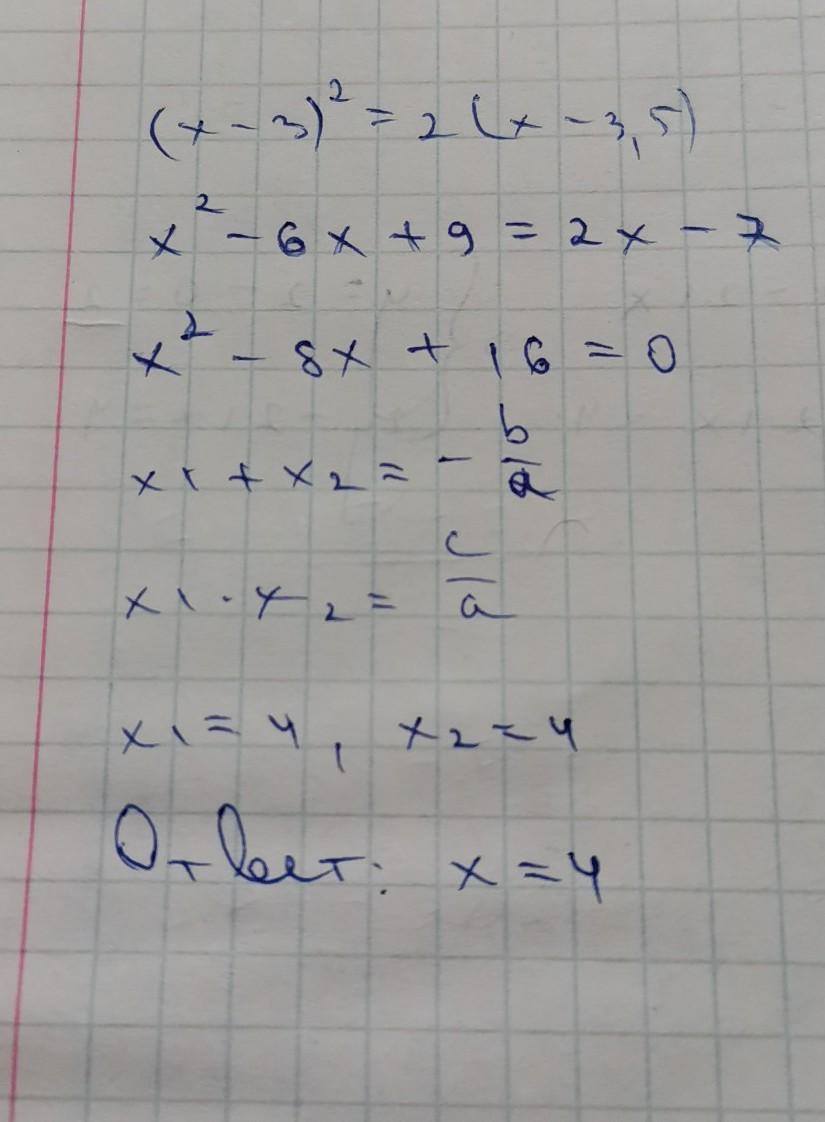 (x - 3)² = 2(x - 3,5)
x² - 6x + 9 = 2x - 7
x² - 8x + 16 = 0
x1 + x2 = - b/a
x1 · x2 = c/a
x1 = 4, x2 = 4
Ответ: x = 4